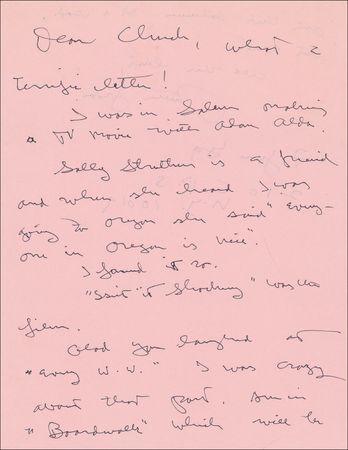 Dear Chuck, what a
Terrific letter!
I was in Salem making
a TV Movie with Alan Alda.
Sally Struthers is a friend
and when she heard I was
going to Oregon she said "Every-
one in Oregon is nice".
I found it so.
"Isn't it Shocking" was the
film.
Glad you laughed at
W.W." I was crazy
about that part. Am in
"Boardwalk" which will be